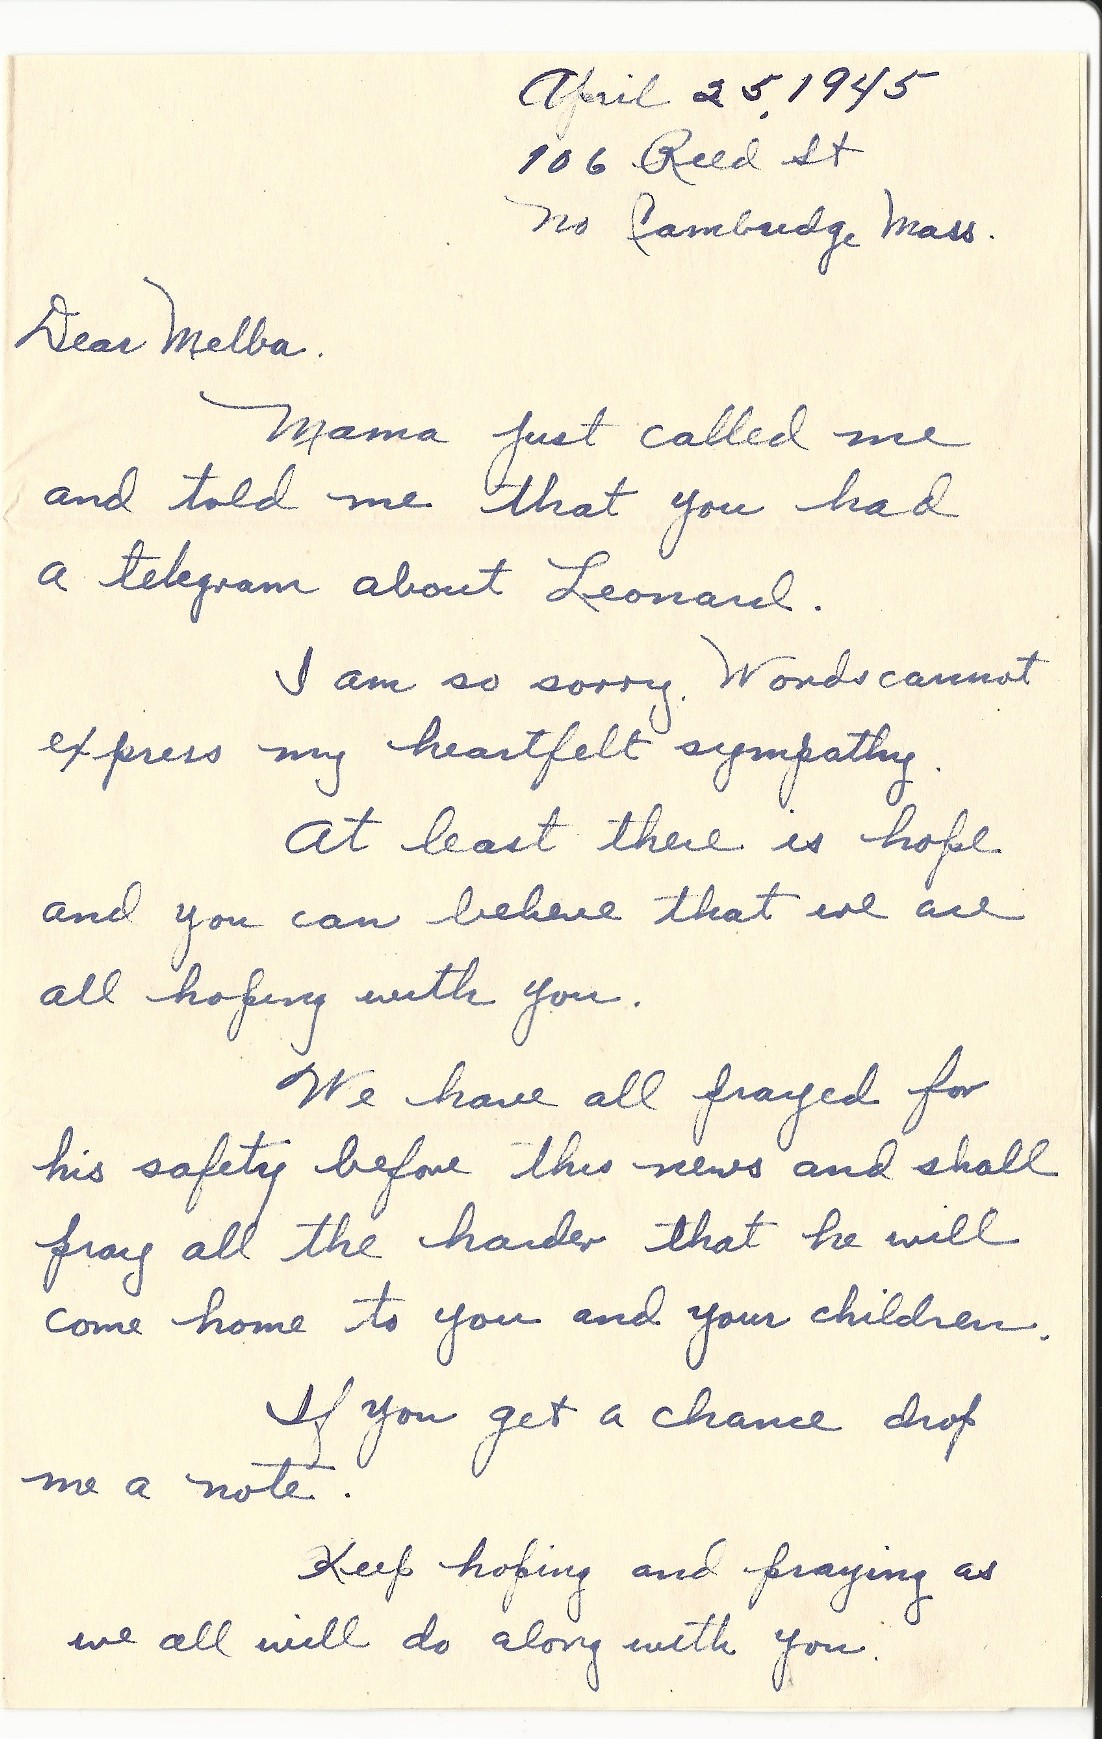 April 25, 1945
106 Reed St
No Cambridge Mass.
Dear Melba.
Mama just called me
and told me that you had
a telegram about Leonard.
I am so sorry. Words cannot
express my heartfelt sympathy.
At least there is hope
and you can believe that we are
all hoping with you.
We have all prayed for
his safety before this news and shall
pray all the harder that he will
come home to you and your children.
If you get a chance drop
me a note.
Keep hoping and praying as
we all will do along with you.